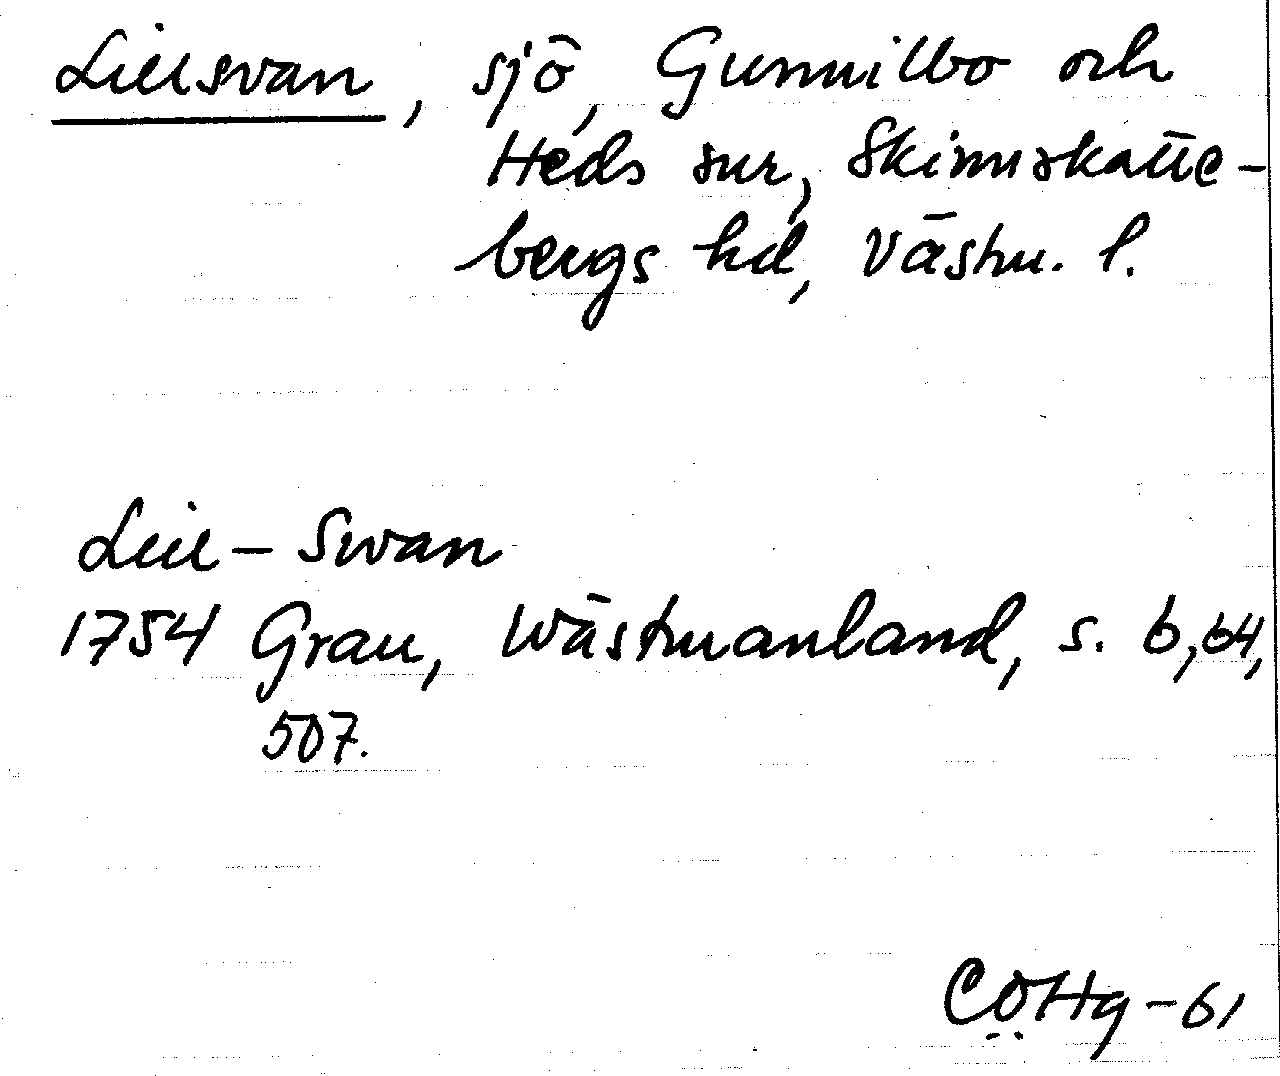 Lillsvan, sjö, Gunnilbo och
Heds snr, Skinnskatte-
bergs hd, Västm. l.
Lill-Swan
1754 Grau, Wästmanland, s. 6, 64,
507.
CÖHg-61